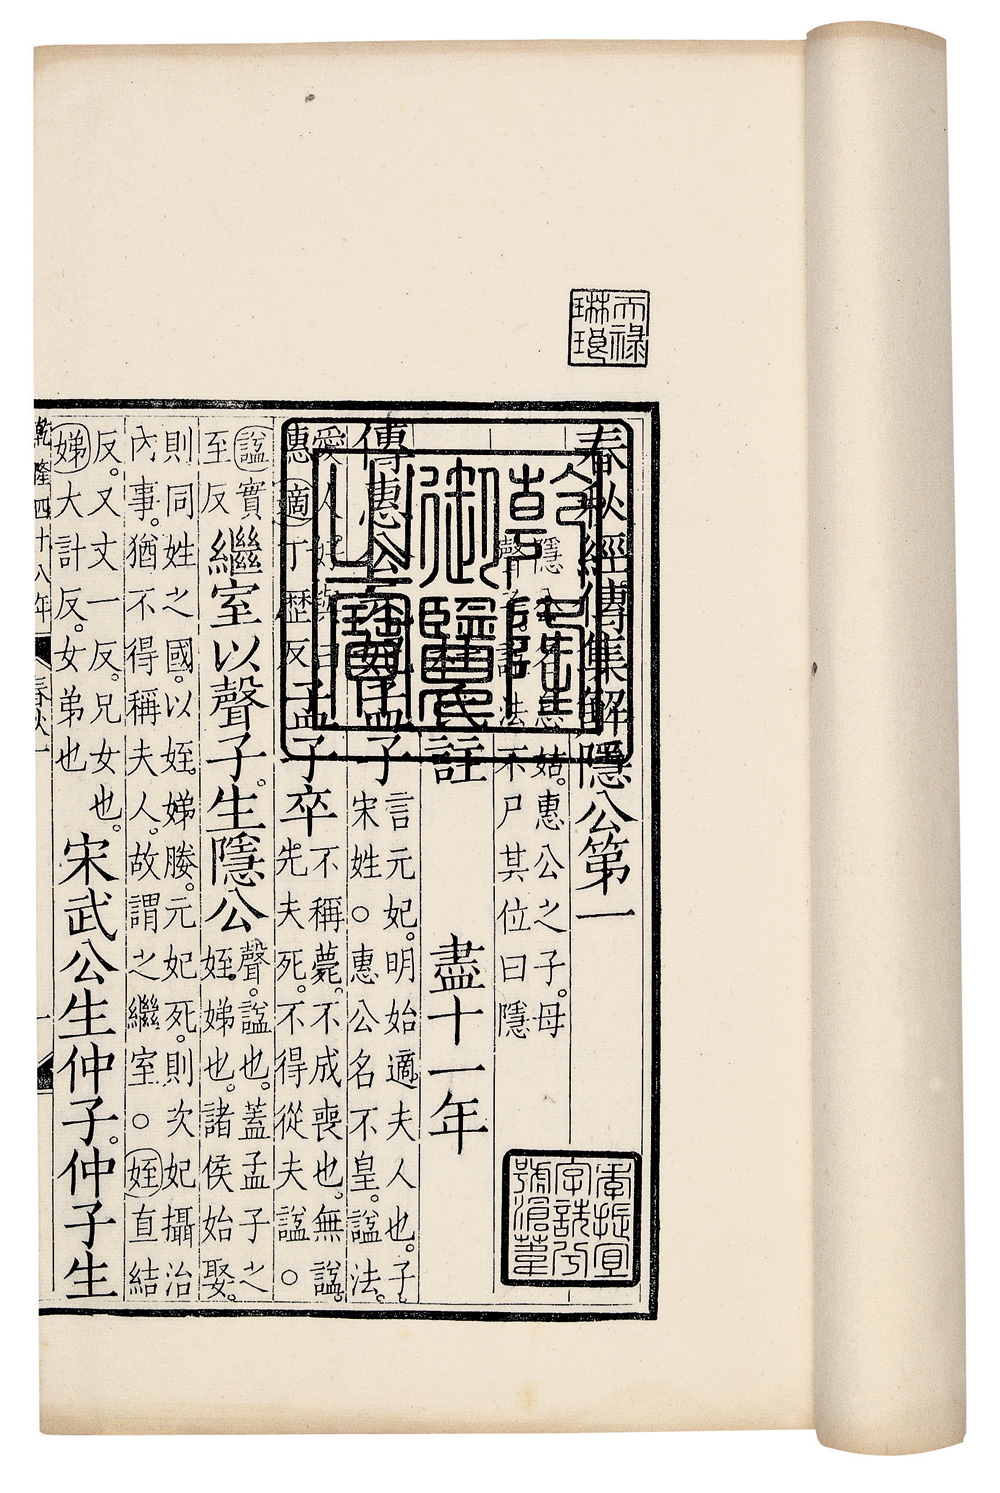 天祿琳琅
乾隆御覽之寶
春秋經傳集解隱公第一
隱公名息姑。惠公之子。母
聲子。諡法不尸其位曰隱
氏註　盡十一年
傳惠公元妃孟子
言元妃。明始適夫人也。子
宋姓○惠公名不皇。諡法。
愛人好與曰
惠適丁歷反
孟子卒
不稱薨。不成喪也。無諡。
先夫死。不得從夫諡○
諡實
至反
繼室以聲子。生隱公
聲。諡也。蓋孟子之
姪娣也。諸侯始娶。
則同姓之國。以姪娣媵。元妃死。則次妃攝治
內事。猶不得稱夫人。故謂之繼室○姪直結
反。又丈一反。兄女也。
娣大計反。女弟也
宋武公生仲子。仲子生
乾隆四十八年
春秋一
一
季振宜字詵兮號滄葦